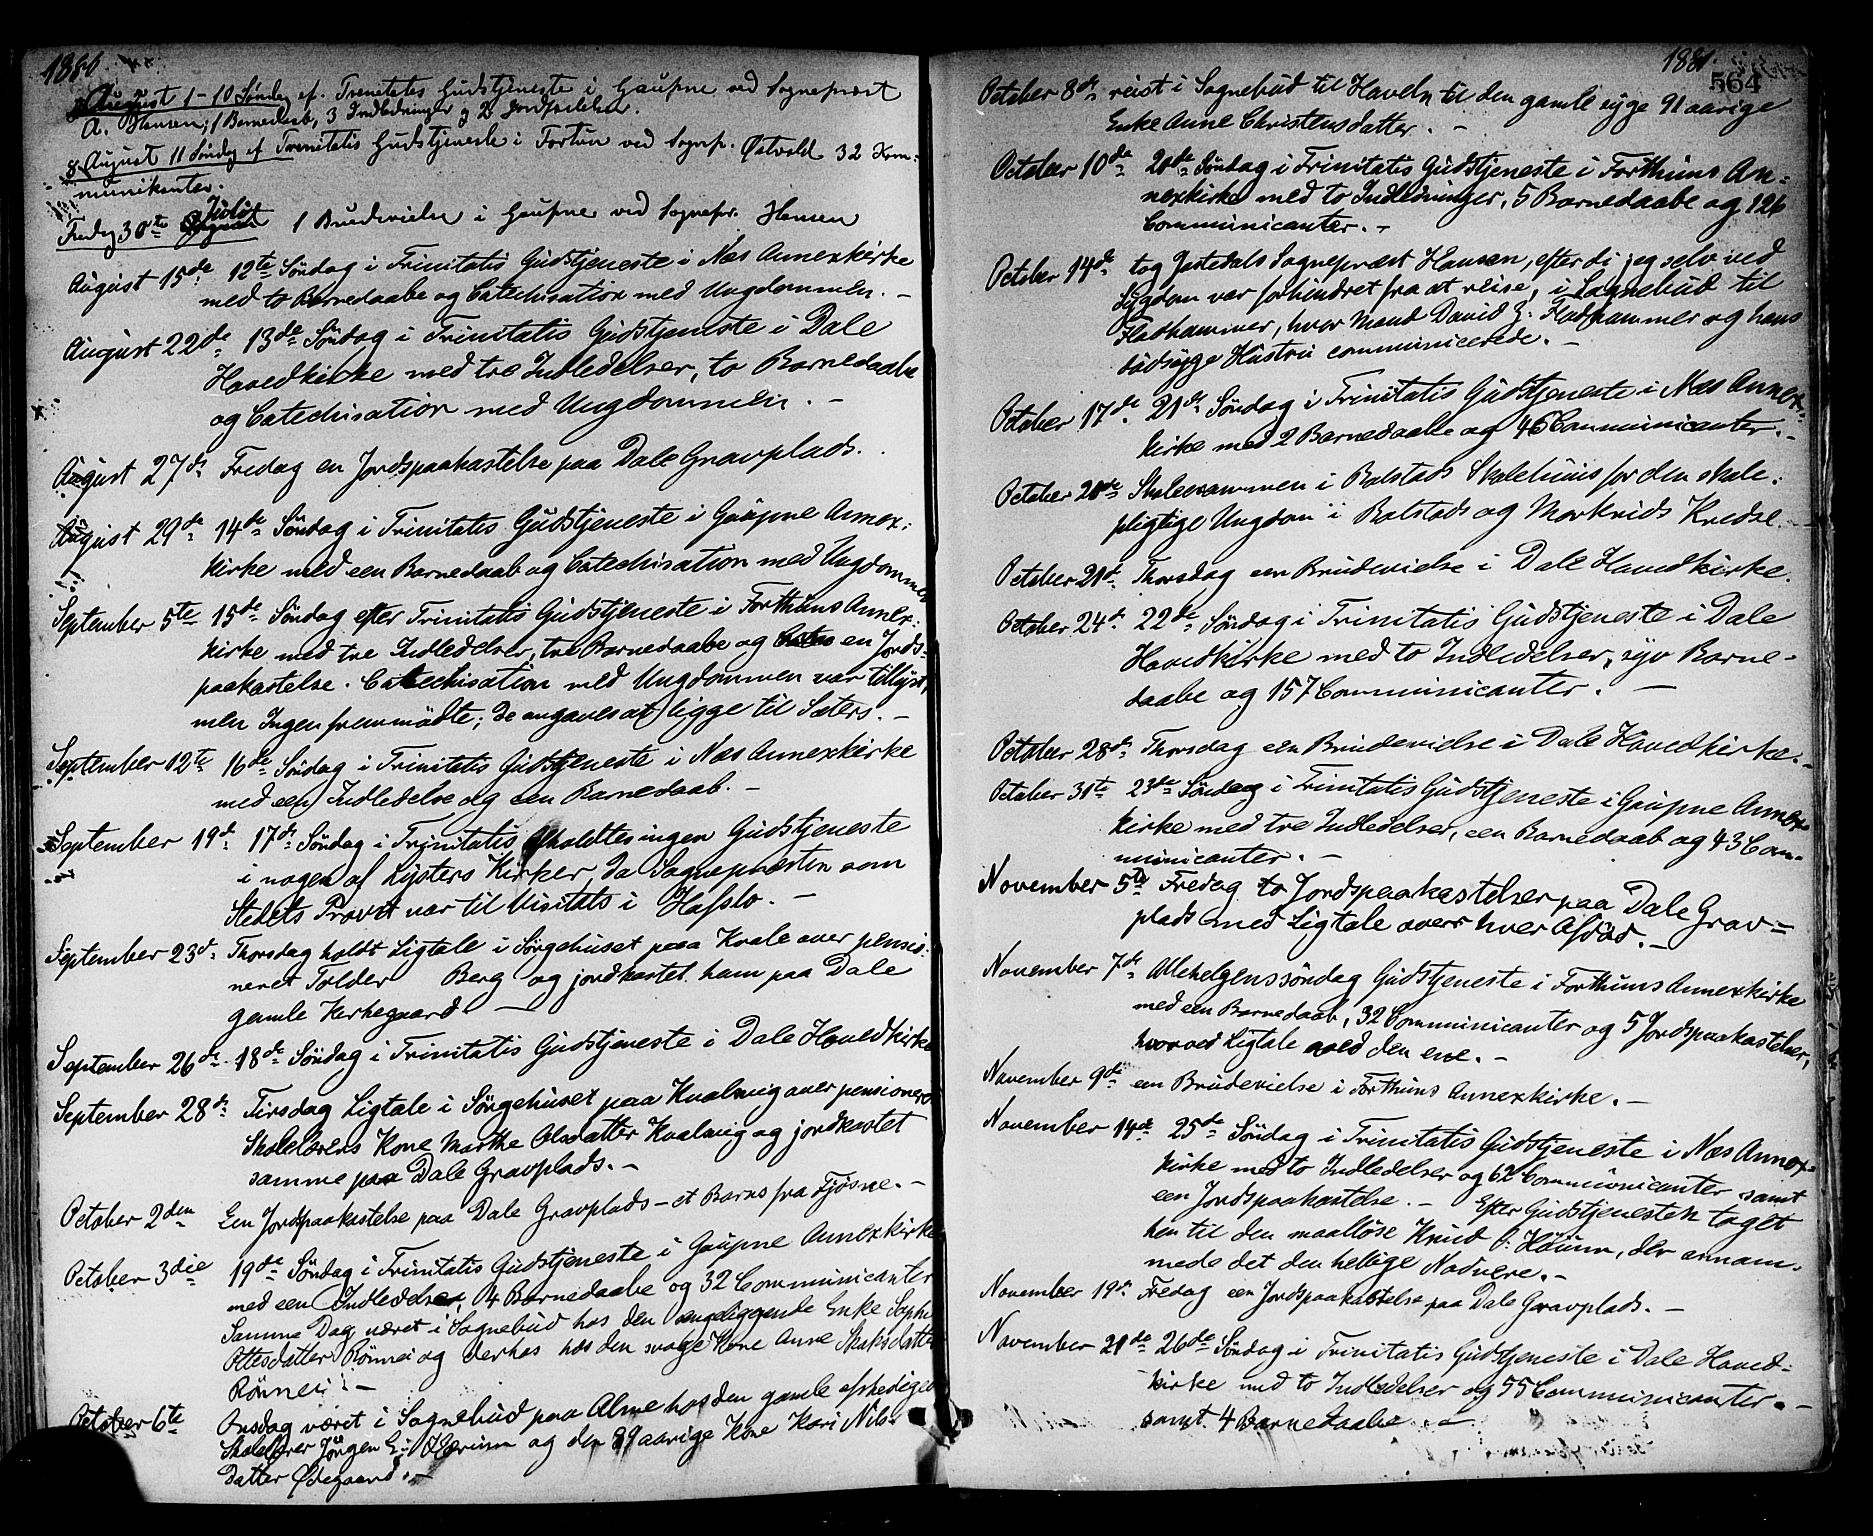 1880
1 August 1 - 10 Søndag ef. Trenitates Gudstjeneste i Gaupne ved Sognepræst
A. Hansen; 1 Barnedaab, 3 Indledninger og 2 Jordfæstelser.
8 August 11 Søndag ef Trenitatis Gudstjeneste i Fortun ved Sognep. Østvold 32 Kom-
munikanter.
Fredag 30te Juli 1 Brudevielse i Gaupne ved Sognepr. Hansen
August 15de 12te Søndag i Trinitatis Gudstjeneste i Næs Annexkirke
med to Barnedaabe og Catechisation med Ungdommen. -
August 22de 13de Søndag i Trinitatis Gudstjeneste i Dale
Hovedkirke med tre Indledelser, to Barnedaabe
og Catechisation med Ungdommen. -
August 27de Fredag en Jordspaakastelse paa Dale Gravplads.
August 29de 14de Søndag i Trinitatis Gudstjeneste i Gaupne Annex-
kirke med een Barnedaab og Catechisation med Ungdommen
September 5te 15de Søndag efter Trinitatis Gudstjeneste i Forthuns Annex-
kirke med tre Indledelser, tre Barnedaabe og en Jords-
paakastelse. Catechisation med Ungdommen var tillyst,
men Ingen fremmødte; de angaves at ligge til Sæters. -
September 12te 16de Søndag i Trinitatis Gudstjeneste i Næs Annexkirke
med een Indledelse og een Barnedaab. -
September 19de 17de Søndag i Trinitatis afholdtes ingen Gudstjeneste
i nogen af Lysters Kirker, da Sognepræsten som
Stedets Provst var til Visitats i Hafslo. -
September 23de Thorsdag holdt Ligtale i Sørgehuset paa Kvale over pensio-
neret Tolder Berg og jordkastet ham paa Dale
gamle Kirkegaard. -
September 26de 18de Søndag i Trinitatis Gudstjeneste i Dale Hovedkirke
September 28de Tirsdag Ligtale i Sørgehuset paa Kvalevig over pensioneret
Skolelærers Kone Marthe Olsdatter Kvalevig og jordkastet
samme paa Dale Gravplads. -
October 2den Een Jordspaakastelse paa Dale Gravplads - et Barns fra Fjøsne. -
October 3die 19de Søndag i Trinitatis Gudstjeneste i Gaupne Annexkirke
med een Indledelse, 4 Barnedaabe og 32 Communicanter
Samme Dag været i Sognebud hos den sengeliggende Enke Sophie
Ottesdatter Rønnei og derhos hos den svage Kone Anne Skaksdatter
Rønnei. -
October 6te Onsdag været i Sognebud paa Alme hos den gamle afskedigede
Skolelærer Jørgen E. og den 89 aarige Kone Kari Nils-
Datter Ødegaard. -
1881.
564
October 8de reist i Sognebud til Haveln til den gamle syge 91 aarige
Enke Anne Christensdatter. -
October 10de 20de Søndag i Trinitatis Gudstjeneste i Forthuns An-
nexkirke med to Indledninger, 5 Barnedaabe og 126
Communicanter. -
October 14de tog Jostedals Sognepræst Hansen, efterdi jeg selv ved
Sygdom var forhindret fra at reise, i Sognebud til
Fladhammer, hvor Mand David J. Fladhammer og hans
dødsyge Hustru communicerede. -
October 17de 21de Søndag i Trinitatis Gudstjeneste i Næs Annex-
kirke med 2 Barnedaabe og 46 Communicanter. -
October 20de Skoleexammen i Bolstads Skolehuus for den skole-
pligtige Ungdom i Bolstads og Morkrids Kredse. -
October 21de Thorsdag een Brudevielse i Dale Hovedkirke.
October 24de 22de Søndag i Trinitatis Gudstjeneste i Dale
Hovedkirke med to Indledelser, syv Barne-
daabe og 157 Communicanter. -
October 28de Thorsdag een Brudevielse i Dale Hovedkirke. -
October 31te 23de Søndag i Trinitatis Gudstjeneste i Gaupne Annex-
kirke med tre Indledelser, een Barnedaab og 43 Com-
municanter. -
November 5te Fredag to Jordspaakastelser paa Dale Grav-
plads med Ligtale over hver Afdød. -
November 7de Allehelgenssøndag Gudstjeneste i Forthuns Annexkirke
med een Barnedaab, 32 Communicanter og 5 Jordspaakastelser,
hvorved Ligtale ved den ene. -
November 9de een Brudevielse i Forthuns Annexkirke. -
November 14de 25de Søndag i Trinitatis Gudstjeneste i Næs Annex-
kirke med to Indledelser og 62 Communicanter samt
een Jordspaakastelse. - Efter Gudstjenesten toget
hen til den maalløse Knud, der annam-
mede det den hellige Nadvere. -
November 19de Fredag een Jordspaakastelse paa Dale Gravplads. -
November 21de 26de Søndag i Trinitatis Gudstjeneste i Dale Hoved-
kirke med to Indledelser og 55 Communicanter. -
samt 4 Barnedaabe. -